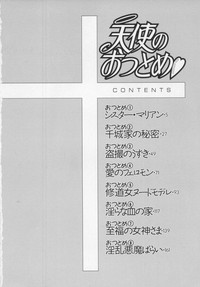 天使の
おつとめ♥
CONTENTS
おつとめ①
シスター・マリアン
おつとめ②
千城家の秘密
おつとめ③
盗撮のうずき
おつとめ④
愛のフェロモン
おつとめ⑤
修道女ヌードモデル
おつとめ⑥
淫らな血の家
おつとめ⑦
至福の女神さま
おつとめ⑧
淫乱悪魔ばらい